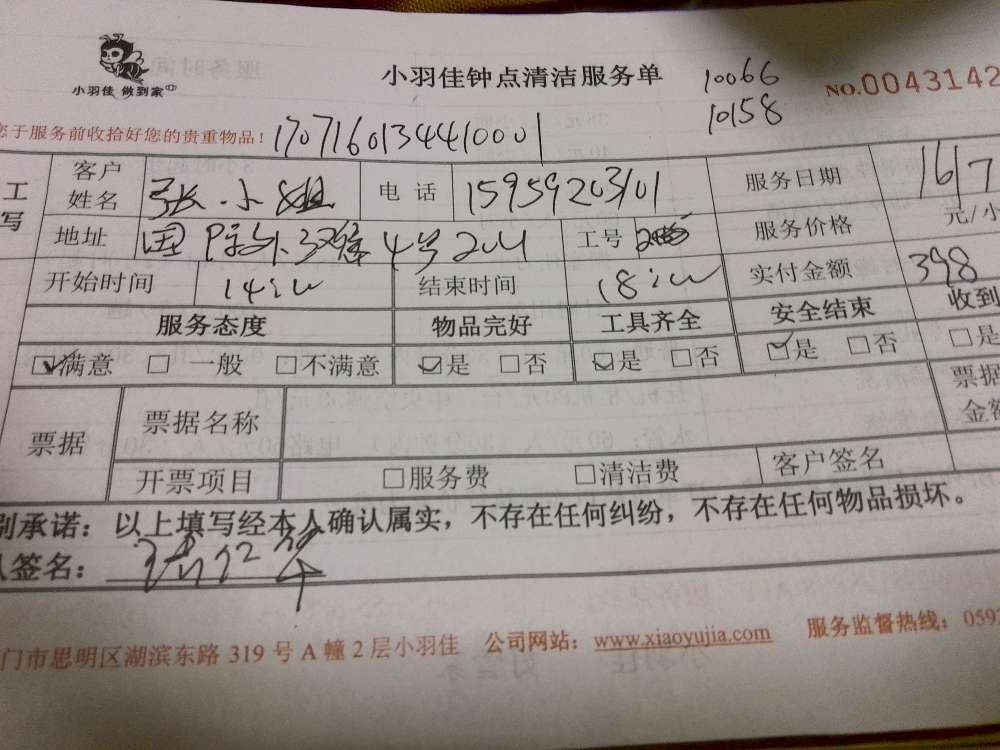 小羽佳 做到家
小羽佳钟点清洁服务单
10066
10158
NO.0043142
您于服务前收拾好您的贵重物品！
1707160134410001
工
写
客户姓名
张小姐
电话
15959203101
服务日期
16/7
地址
4号201
工号
服务价格
元/小
开始时间
14:00
结束时间
18:00
实付金额
398
服务态度
物品完好
工具齐全
安全结束
收到
☑满意 □一般 □不满意
☑是 □否
☑是 □否
☑是 □否
□是
票据
票据名称
票据
金额
开票项目
□服务费 □清洁费
客户签名
别承诺：以上填写经本人确认属实，不存在任何纠纷，不存在任何物品损坏。
人签名：
门市思明区湖滨东路 319 号 A 幢 2 层小羽佳 公司网站：www.xiaoyujia.com 服务监督热线：0592